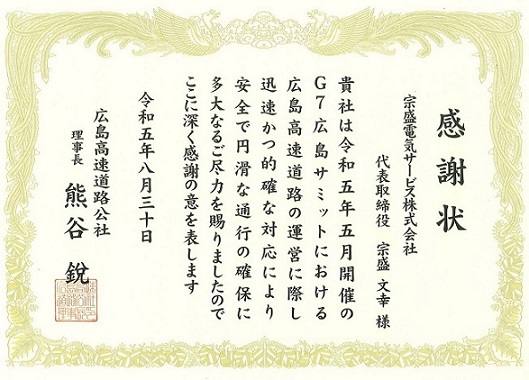 感謝状
宗盛電気サービス株式会社
代表取締役 宗盛 文幸 様
貴社は令和五年五月開催の
G7広島サミットにおける
広島高速道路の運営に際し
迅速かつ的確な対応により
安全で円滑な通行の確保に
多大なるご尽力を賜りましたので
ここに深く感謝の意を表します
令和五年八月三十日
広島高速道路公社
理事長 熊谷 鋭